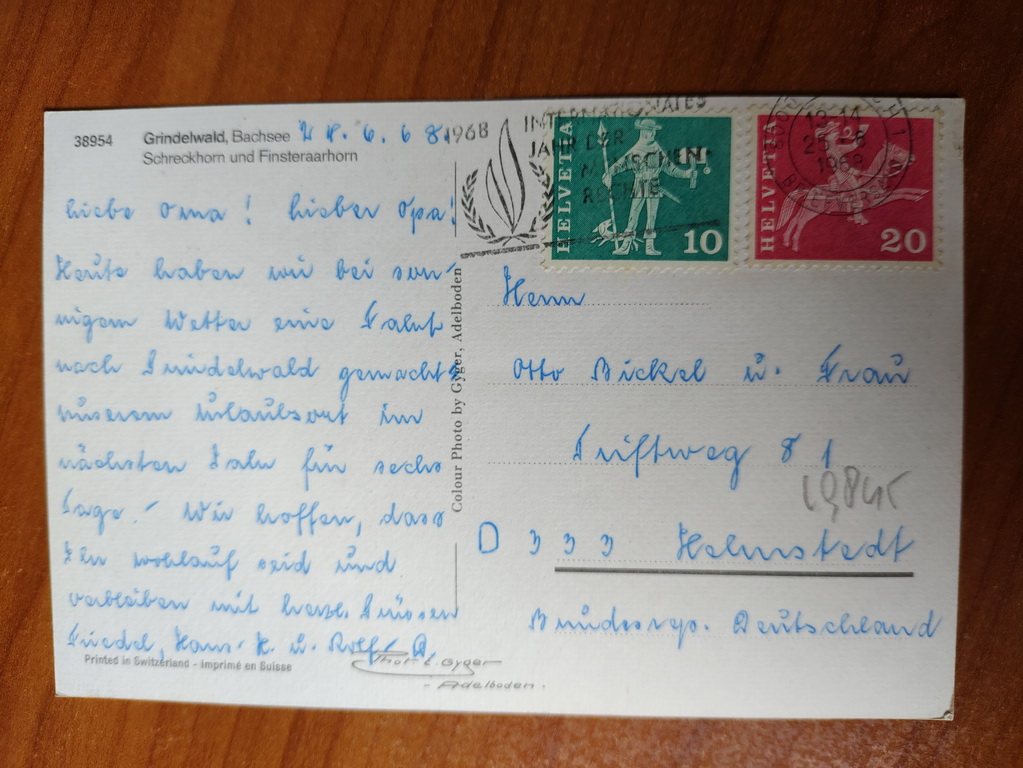 38954 Grindelwald, Bachsee
Schreckhorn und Finsteraarhorn
6. 68 1968
Liebe Oma! Lieber Opa!
Heute haben wir bei son-
nigem Wetter eine Fahrt
nach Grindelwald gemacht,
unserem Urlaubsort im
nächsten Jahr für sechs
Tage. Wir hoffen, dass
Ihr wohlauf seid und
verbleiben mit herzl. Grüssen
Friedel, Hans-H. u. Rolf
Printed in Switzerland - Imprimé en Suisse
Colour Photo by Gyger, Adelboden
Phot E. Gyger
- Adelboden -
INTERNATIONALES
JAHR DER
MENSCHEN-
RECHTE
HELVETIA
10
HELVETIA
20
1968
Herrn
Otto Bickel u. Frau
Triftweg 81
D 333 Helmstedt
Bundesrep. Deutschland